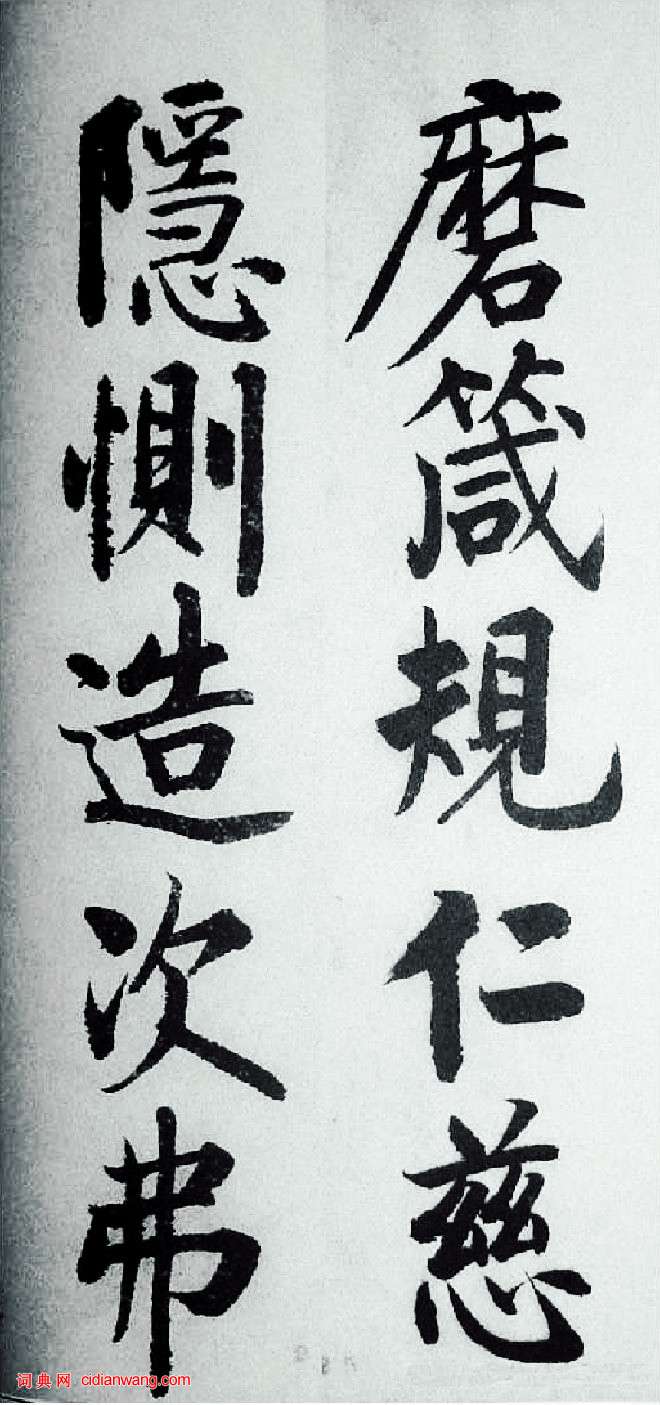 磨箴規仁慈
隱惻造次弗
词典网 cidianwang.com